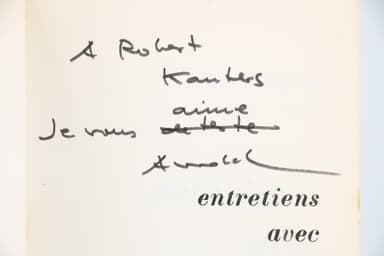 A Robert
Kanters
aime
Je vous déteste
Arnold
entretiens
avec